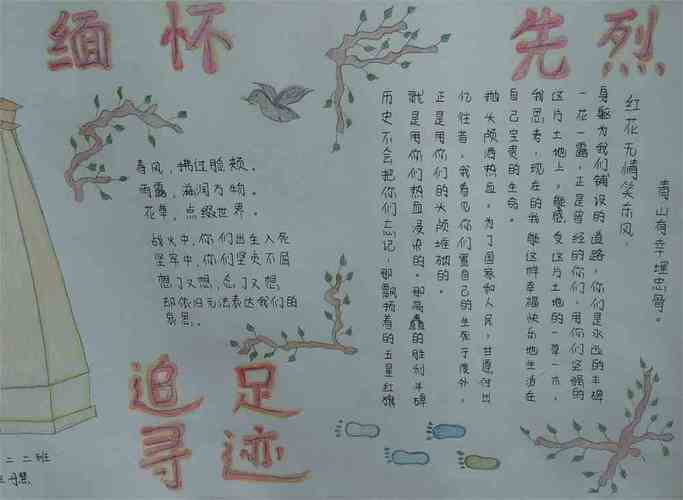 缅怀先烈
春风,拂过脸颊。
雨露,滋润万物。
花草,点缀世界。
战火中,你们出生入死
坚牢中,你们坚贞不屈
想了又想,忘了又想
却依旧无法表达我们的
哀思。
历史不会把你们忘记,那飘扬着的五星红旗
就是用你们热血浸染的。那高矗的胜利丰碑
正是用你们的头颅堆砌的。
忆往昔,我看见你们置自己的生死于度外,
抛头颅洒热血。为了国家和人民,甘愿付出
自己宝贵的生命。
我思考,现在的我能这样幸福快乐地生活在
这片土地上,能感受这片土地的一草一木,
一花一露,正是曾经的你们,用你们坚强的
身躯为我们铺设的道路,你们是永远的丰碑
红花无情笑东风,
青山有幸埋忠骨。
追寻足迹
二二班